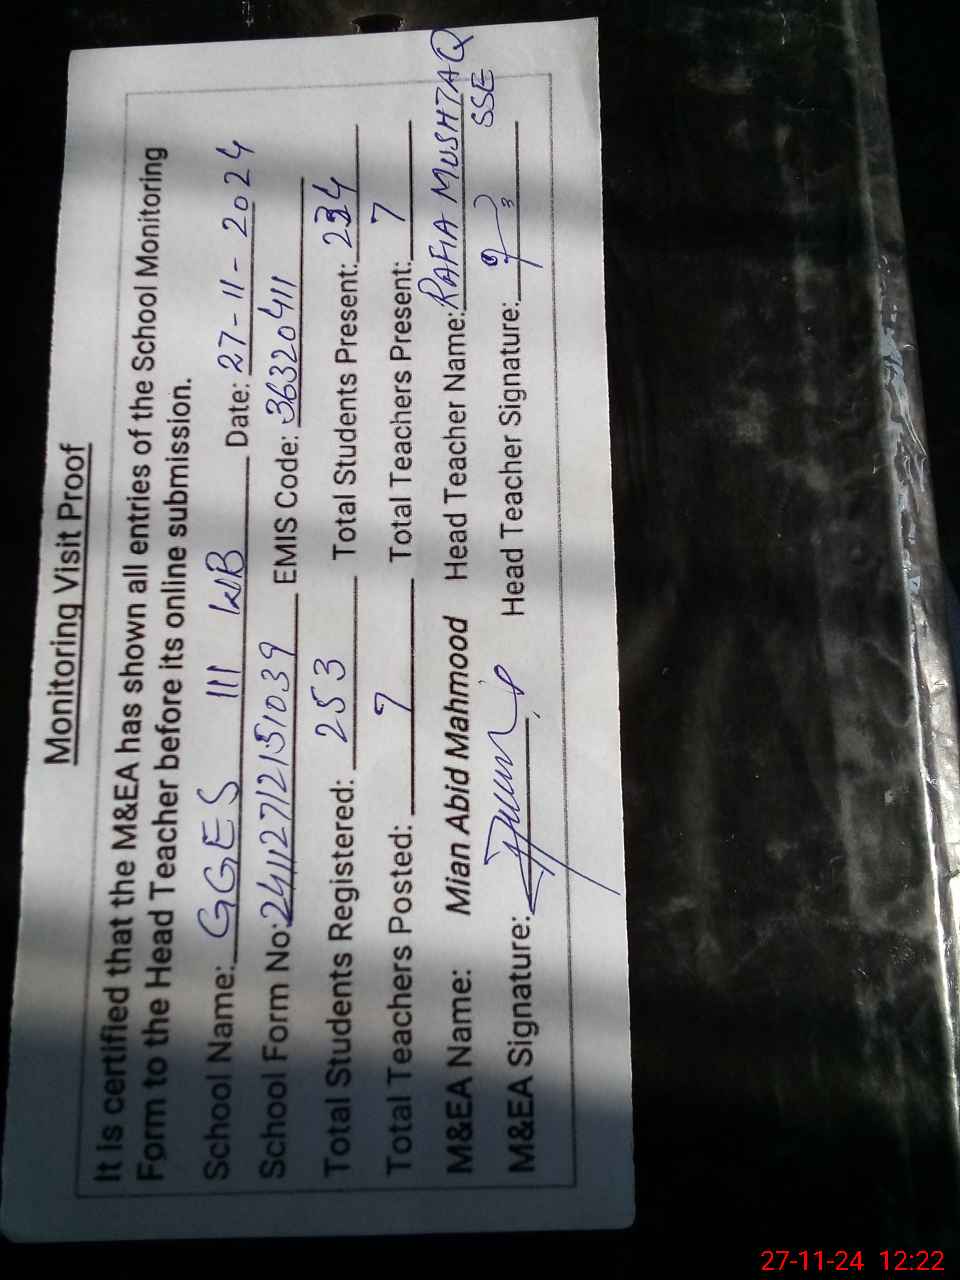 Monitoring Visit Proof
It is certified that the M&EA has shown all entries of the School Monitoring
Form to the Head Teacher before its online submission.
School Name: GGES 111 WB Date: 27-11-2024
School Form No: 24112712151039 EMIS Code: 36320411
Total Students Registered: 253 Total Students Present: 234
Total Teachers Posted: 7 Total Teachers Present: 7
M&EA Name: Mian Abid Mahmood Head Teacher Name: RAFIA MUSHTAQ
SSE
M&EA Signature: Head Teacher Signature:
27-11-24 12:22